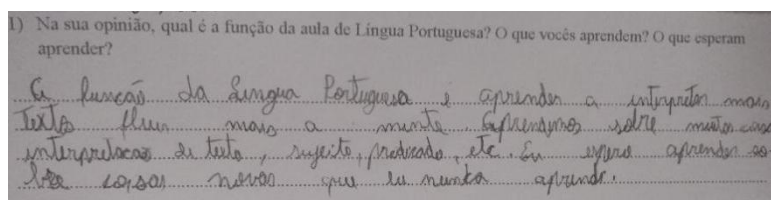 1) Na sua opinião, qual é a função da aula de Língua Portuguesa? O que vocês aprendem? O que esperam
aprender?
A função da Lingua Portuguesa e aprender a interpretar mais
textos fluir mais a mente. Aprendemos sobre muitas coisas
interpretacao de texto, sugeito, predicado, etc. Eu espero aprender
coisas novas que eu nunca aprendi.